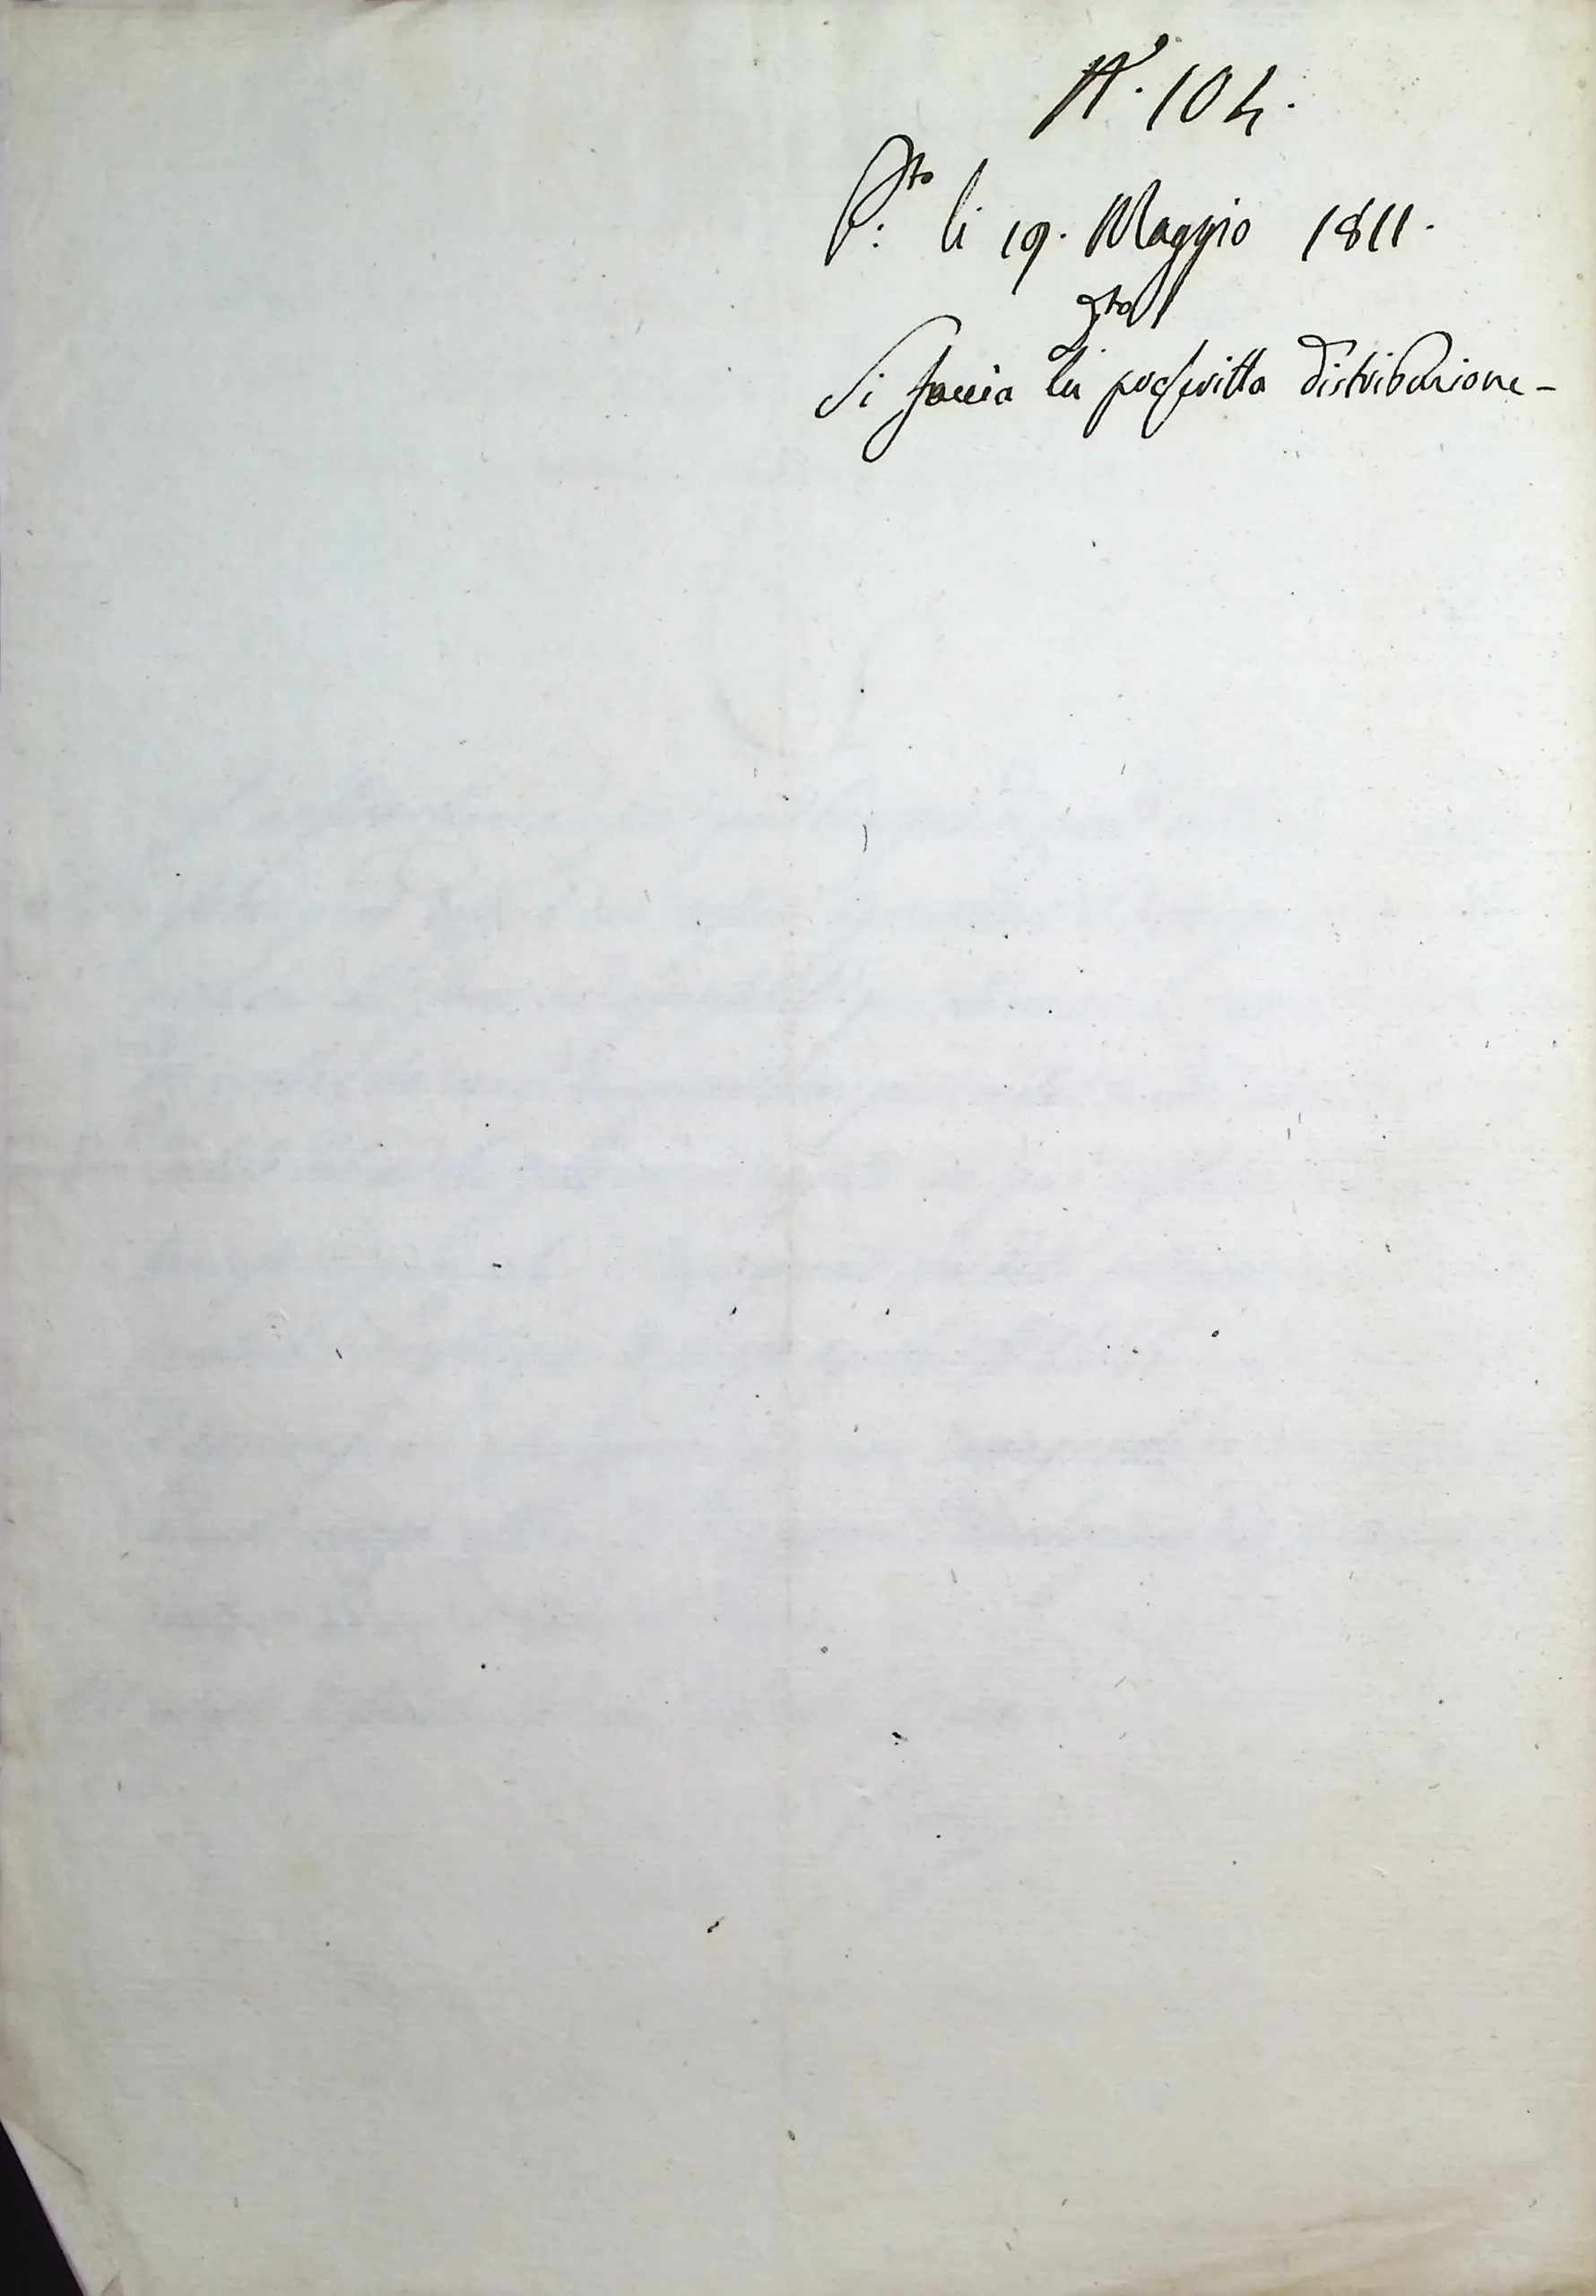 N.º 104.
P:to li 19. Maggio 1811.
dto
Si faccia la proscritta distribuzione -